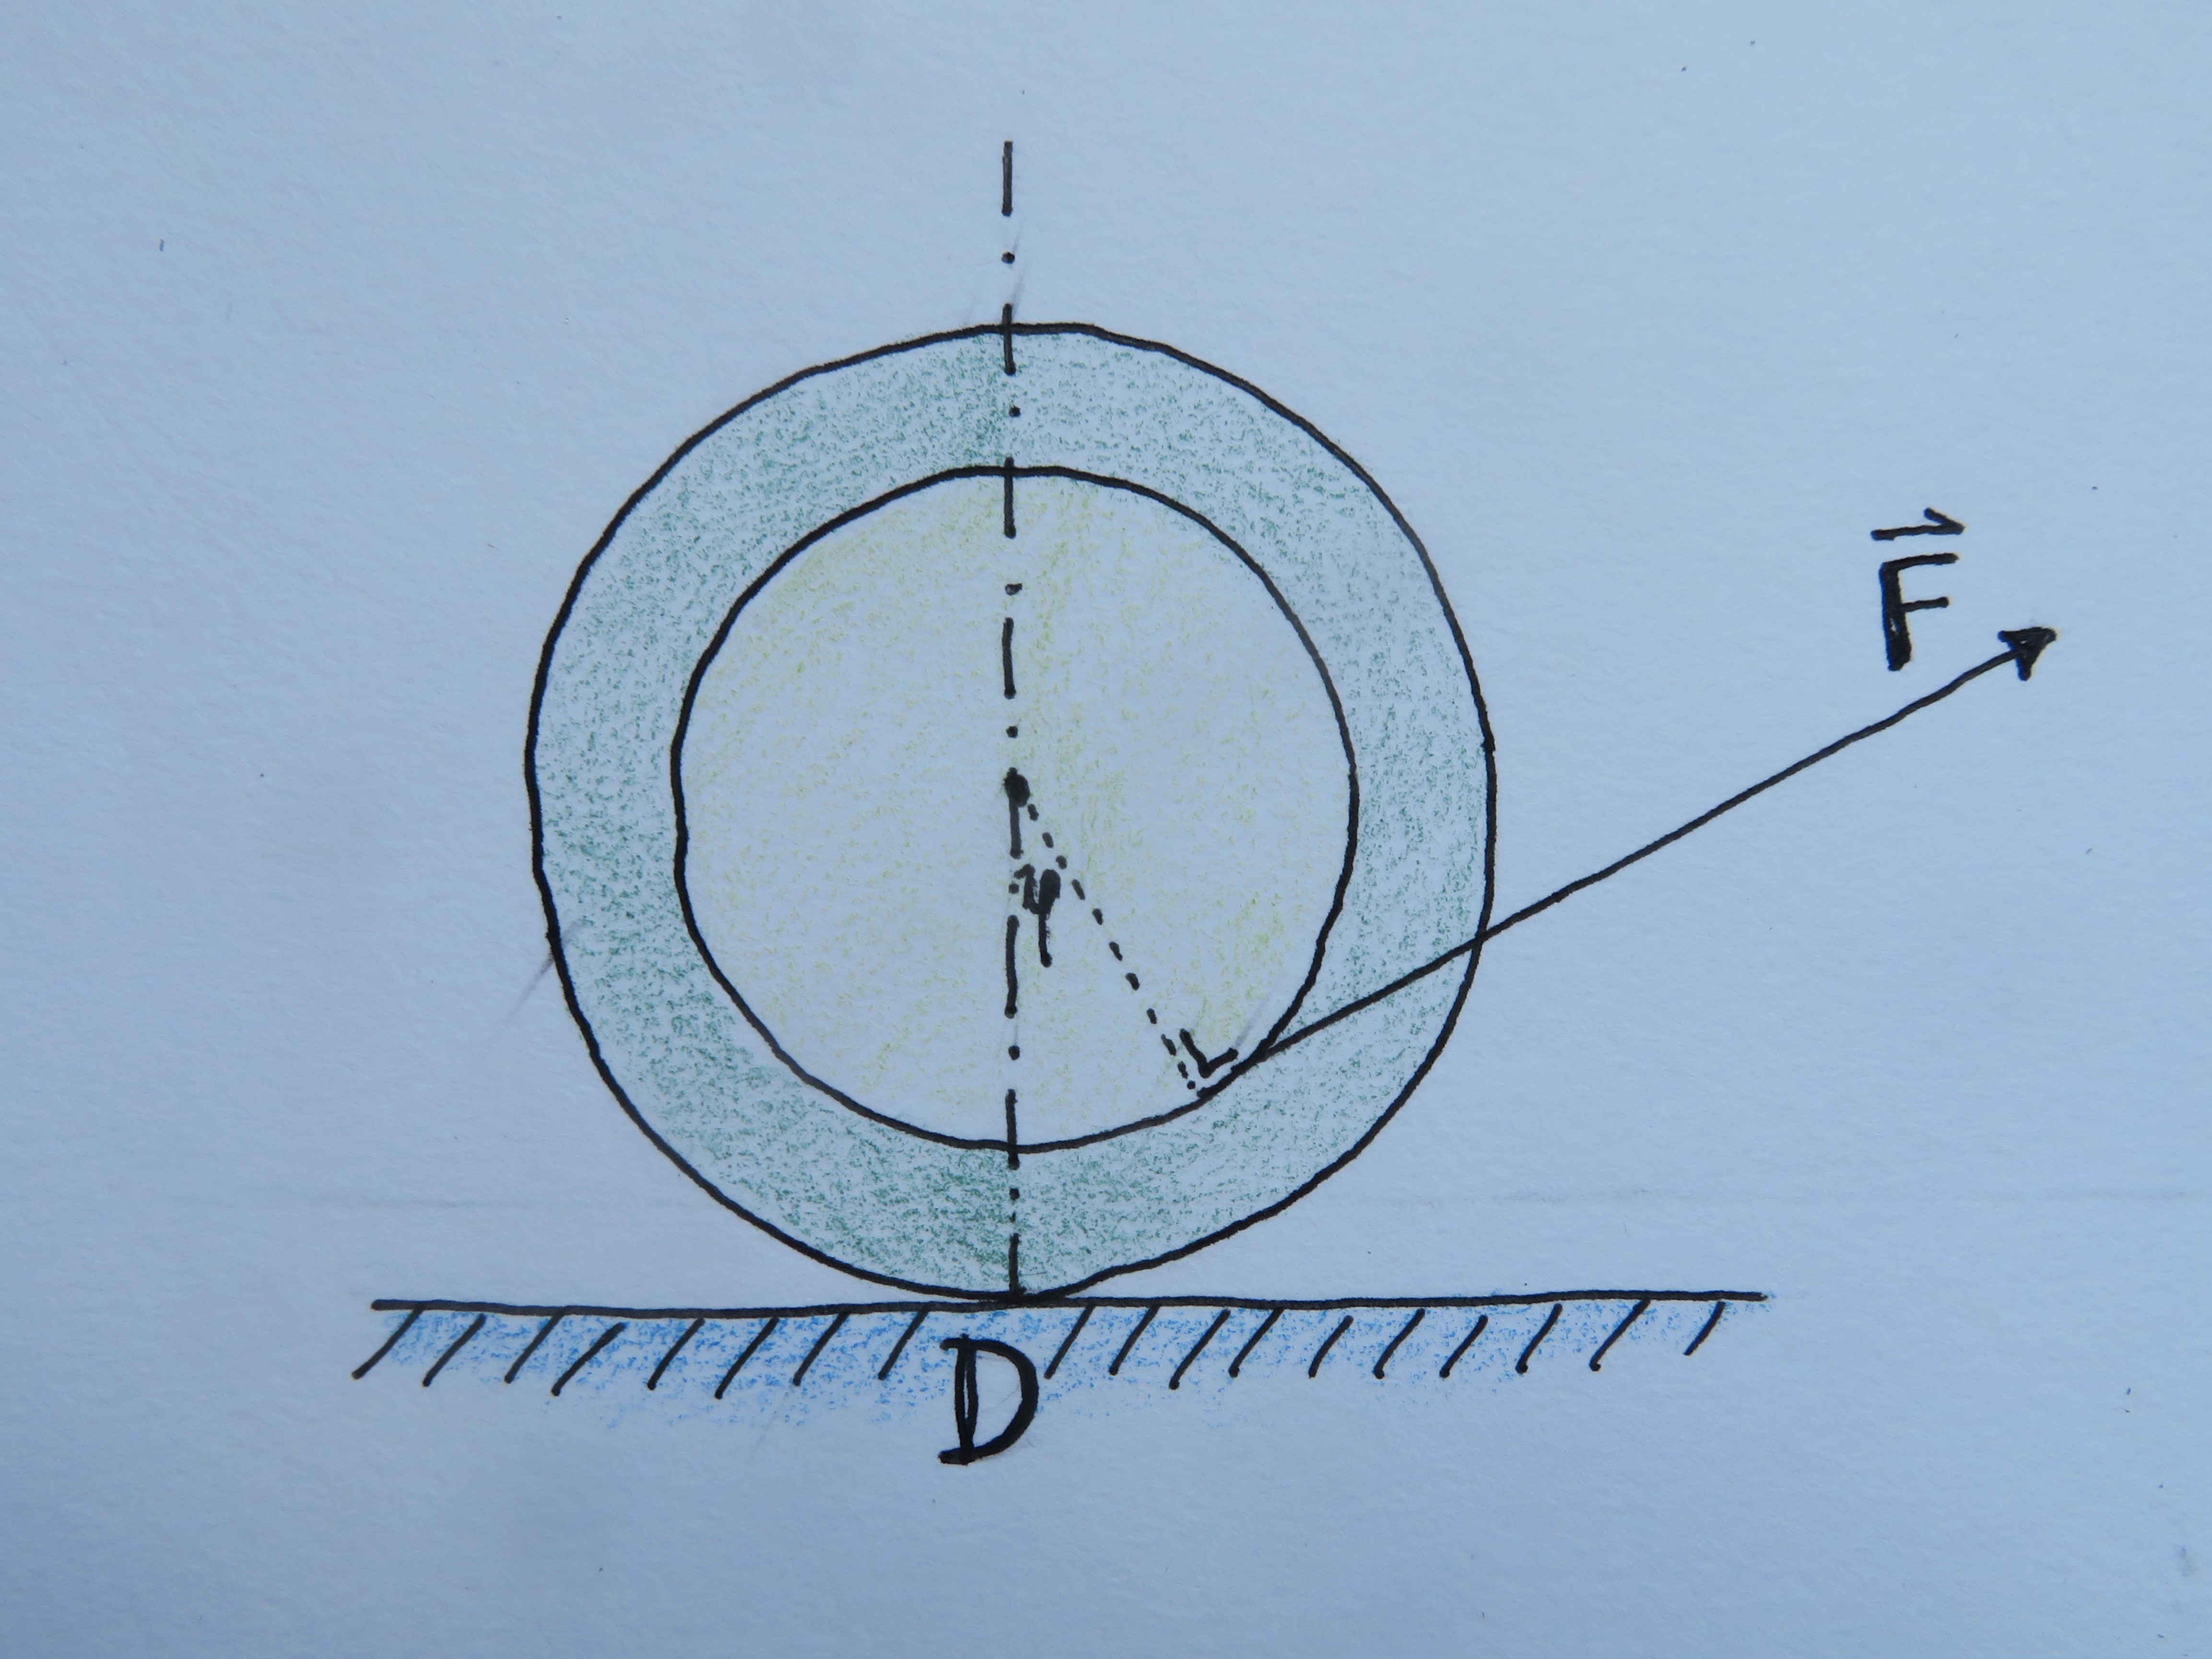 F⃗
φ
D